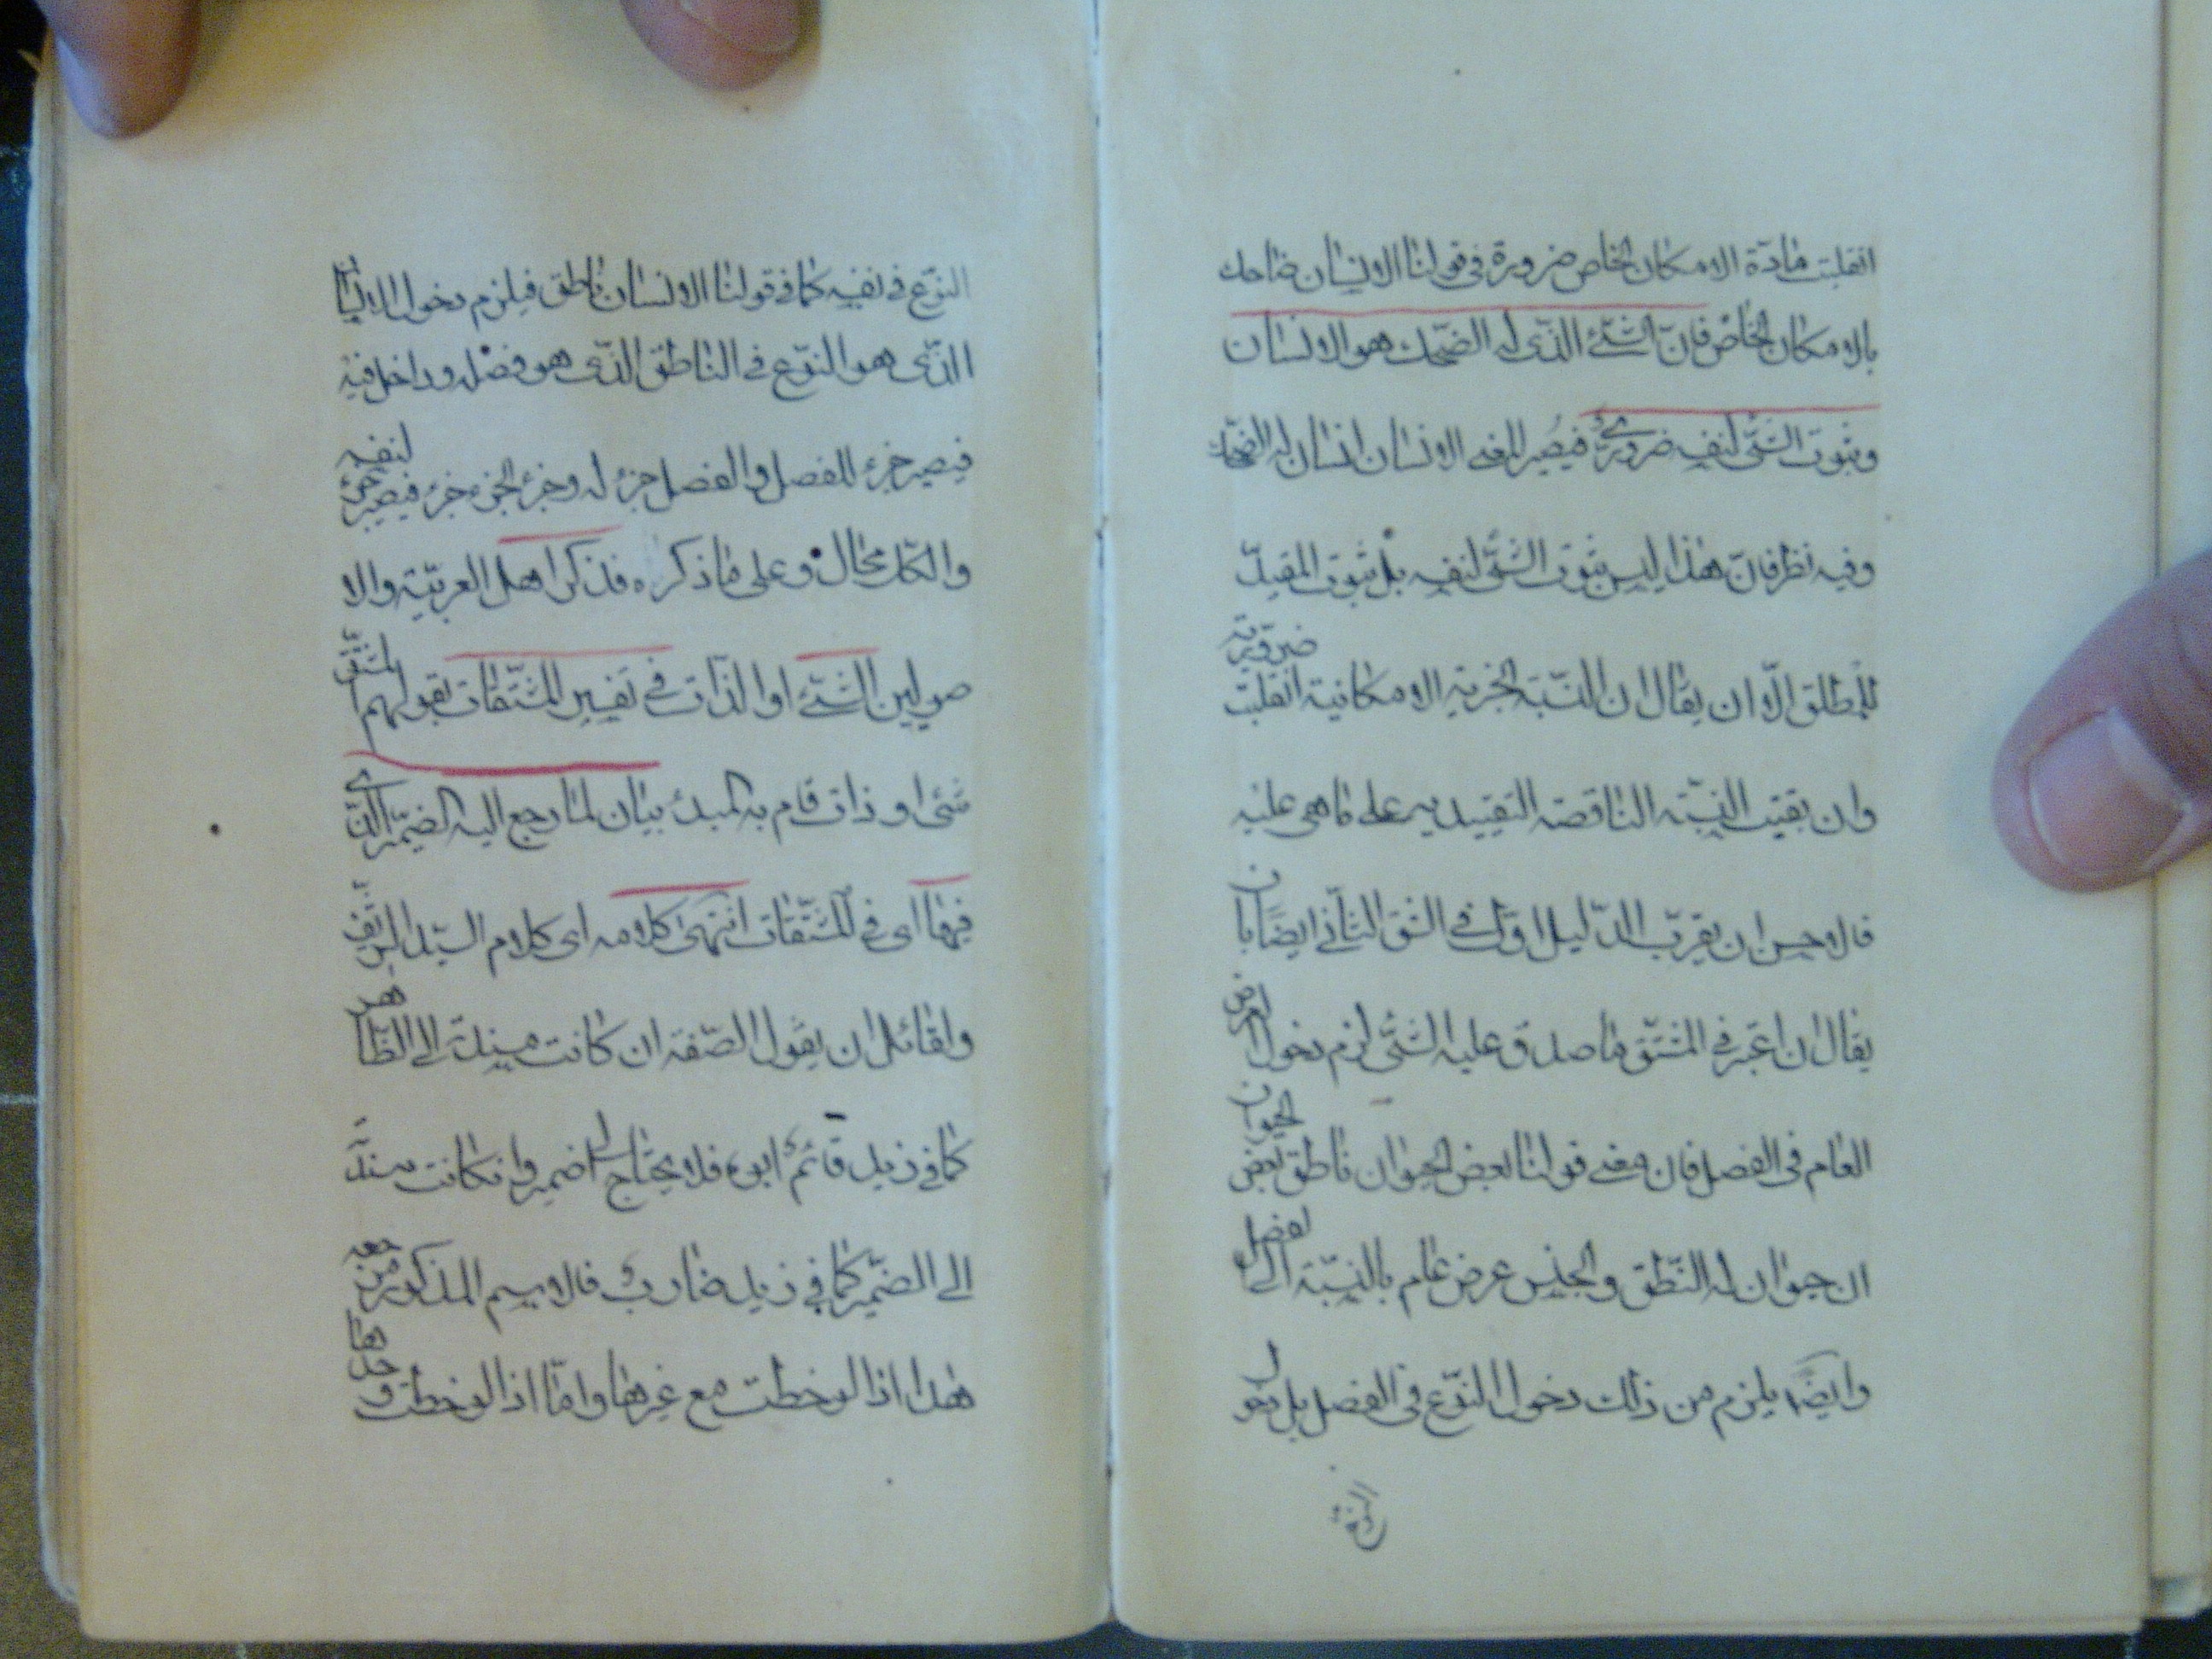 انقلبت مادّة الامكان الخاص ضرورة فى قولنا الانسان ضاحك
بالامكان الخاصّ فانّ الشّئ الذّى له الضّحك هو الانسان
وثبوت الشّئ لنفسه ضرورىّ فيصير المعنى الانسان انسان له الضّحك
وفيه نظر فانّ هذا ليس ثبوت الشّئ لنفسه بل ثبوت المقيّد
للمطلق الّا ان يقال ان النّسبة الخبرية الامكانية انقلبت ضرورية
وان بقيت النّسبة الناقصة التقييدية على ما هى عليه
فالاحسن ان يقرّب الدّليل الاوّل فى الشق الثانى ايضًا بان
يقال ان اعتبر فى المشتق ما صدق عليه الشّئ لزم دخول العرض
العام فى الفصل فان معنى قولنا بعض الحيوان ناطق بعض الحيوان
ان حيوان له النّطق والجنس عرض عام بالنّسبة الى الفصل
وايضًا يلزم من ذلك دخول النّوع فى الفصل بل دخول
النّوع
النّوع فى نفسه كما فى قولنا الانسان ناطق فيلزم دخول الانسان
الذّى هو النّوع فى الناطق الذّى هو فصله وداخل فيه
فيصير جزء للفصل والفصل جزء له وجزء الجزء جزء فيصير جزء لنفسه
والكلّ محال وعلى ما ذكره فذكر اهل العربيّة والا
صوليين الشّئ او الذّات فى تفسير المشتّقات بقولهم المشتقّ
شئ او ذات قام به المبدء بيان لما رجع اليه الضّمير الذّى
فيها اى فى المشتّقات انتهى كلامه اى كلام السيّد الشريف
ولقائل ان يقول الصّفة ان كانت مسندة الى الظاهر
كما فى زيد قائم ابوه فلا يحتاج الى ضمير وان كانت مسندة
الى الضّمير كما فى زيد ضارب فالاسم المذكور مرجعه
هذا اذا لوحظت مع غيرها وامّا اذا لوحظت وحدها